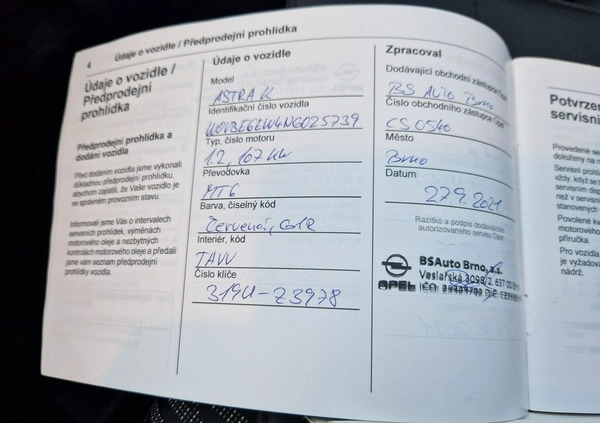 4
Údaje o vozidle / Předprodejní prohlídka
Údaje o vozidle /
Předprodejní
prohlídka
Předprodejní prohlídka a
dodání vozidla
Před dodáním vozidla jsme vykonali
důkladnou předprodejní prohlídku,
abychom zajistili, že Vaše vozidlo je
ve správném provozním stavu.
Informovali jsme Vás o intervalech
servisních prohlídek, výměnách
motorového oleje a nezbytných
kontrolách motorového oleje a předali
jsme vám seznam předprodejní
prohlídky vozidla.
Údaje o vozidle
Model
ASTRA K
Identifikační číslo vozidla
Typ, číslo motoru
1.2, 107 kW
Převodovka
MT6
Barva, číselný kód
Červená,
Interiér, kód
TAVV
Číslo klíče
Z3978
Zpracoval
Dodávající obchodní zástupce Opel
BS Auto Brno
Číslo obchodního zástupce Opel
CS 0540
Město
Brno
Datum
27.9.2021
Razítko a podpis dodávajícího
autorizovaného servisu Opel
BSAuto Brno, a.s.
Veslařská 2, 637 00
OPEL IČO:
Potvrzen
servisní
Provedené se
doloženy na n
Servisní prohl
vždy, když se t
servisním disp
než v servisn
stanovených
Povolené kv
motorového
příručka.
Pro vozidla
je vyžadova
nádrž.